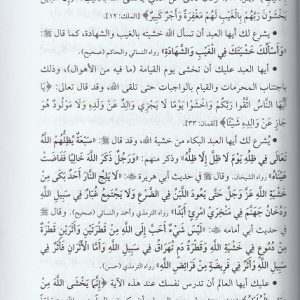 يَخْشَوْنَ رَبَّهُمْ بِالْغَيْبِ لَهُمْ مَغْفِرَةٌ وَأَجْرٌ كَبِيرٌ﴾ [الملك: ١٢].
• يشرع لك أيها العبد سؤال الله خشيته بالغيب والشهادة، كما قال ﷺ:
«وَأَسْأَلُكَ خَشْيَتَكَ فِي الْغَيْبِ وَالشَّهَادَةِ» رواه النسائي والحاكم (صحيح).
• أيها العبد عليك أن تخشى يوم القيامة (ما فيه من الأهوال)، وذلك
باجتناب المحرمات والقيام بالواجبات حتى تلقى الله، وقد قال تعالى: ﴿يَا
أَيُّهَا النَّاسُ اتَّقُوا رَبَّكُمْ وَاخْشَوْا يَوْمًا لَا يَجْزِي وَالِدٌ عَنْ وَلَدِهِ وَلَا مَوْلُودٌ هُوَ
جَازٍ عَنْ وَالِدِهِ شَيْئًا﴾ [لقمان: ٣٣].
• يشرع لك أيها العبد البكاء من خشية الله، وقد قال ﷺ: «سَبْعَةٌ يُظِلُّهُمُ اللَّهُ
تَعَالَى فِي ظِلِّهِ يَوْمَ لَا ظِلَّ إِلَّا ظِلُّهُ» وذكر منهم: «وَرَجُلٌ ذَكَرَ اللَّهَ خَالِيًا فَفَاضَتْ
عَيْنَاهُ» رواه الشيخان. وقال ﷺ في حديث أبي هريرة: «لَا يَلِجُ النَّارَ أَحَدٌ بَكَى مِنْ
خَشْيَةِ اللَّهِ عَزَّ وَجَلَّ حَتَّى يَعُودَ اللَّبَنُ فِي الضَّرْعِ وَلَا يَجْتَمِعُ غُبَارٌ فِي سَبِيلِ اللَّهِ
وَدُخَانُ جَهَنَّمَ فِي مَنْخَرَيِ امْرِئٍ أَبَدًا» رواه الترمذي وأحمد والنسائي (صحيح). وقال ﷺ
في حديث أبي أمامة: «لَيْسَ شَيْءٌ أَحَبَّ إِلَى اللَّهِ مِنْ قَطْرَتَيْنِ وَأَثَرَيْنِ قَطْرَةٌ
مِنْ دُمُوعٍ فِي خَشْيَةِ اللَّهِ وَقَطْرَةُ دَمٍ تُهَرَاقُ فِي سَبِيلِ اللَّهِ وَأَمَّا الْأَثَرَانِ فَأَثَرٌ فِي
سَبِيلِ اللَّهِ وَأَثَرٌ فِي فَرِيضَةٍ مِنْ فَرَائِضِ اللَّهِ» رواه الترمذي (حسن).
• عليك أيها العالم أن تدرس نفسك عند هذه الآية ﴿إِنَّمَا يَخْشَى اللَّهَ مِنْ